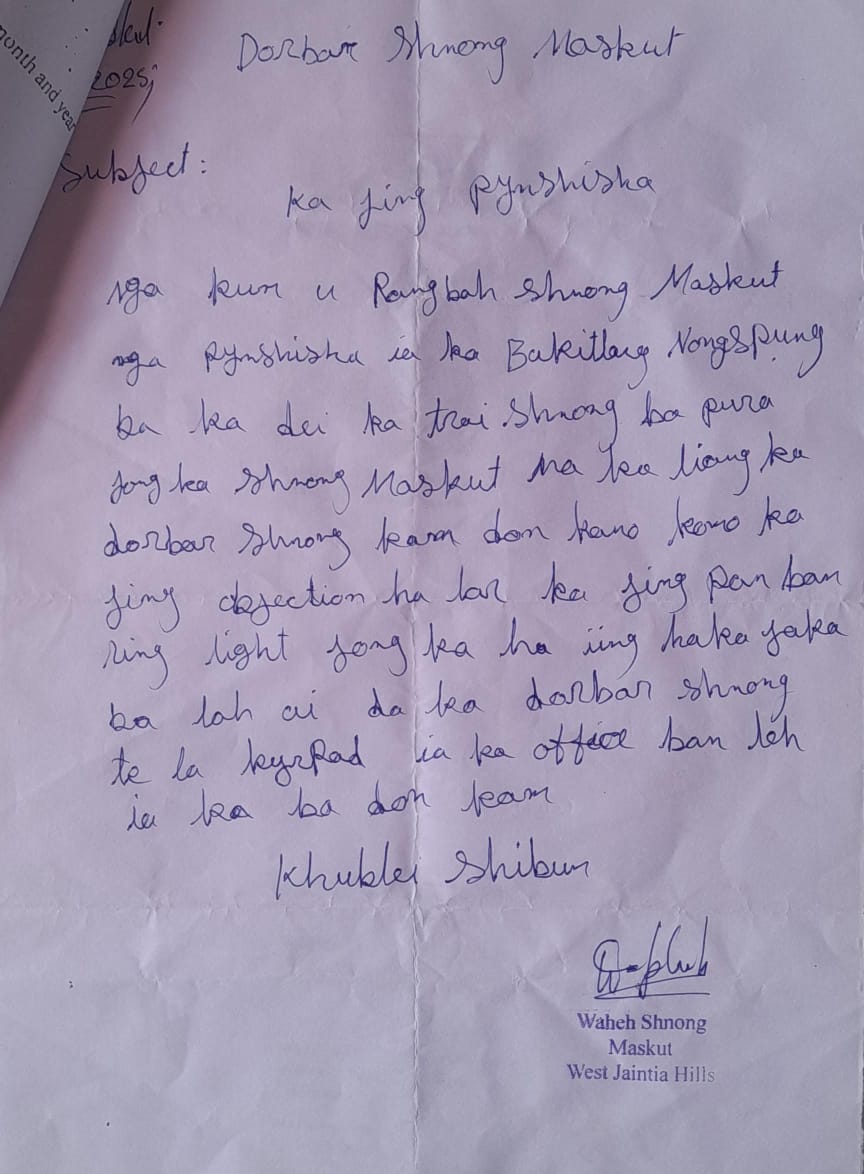 month and year
skut.
2025,
Dorbar Shnong Maskut
Subject:
Ka jing pynshisha
nga kum u Rangbah Shnong Maskut
nga pynshisha ia ka Bakitlang Nongspung
ba ka dei ka trai Shnong ba pura
jong ka Shnong Maskut na ka liang ka
dorbar Shnong kam don kano kono ka
jing objection ha lar ka jing pan ban
ring light jong ka ha iing haka jaka
ba lah ai da ka dorbar shnong
te la kyrpad ia ka office ban leh
ia ka ba don kam
Khublei Shibun
Waheh Shnong
Maskut
West Jaintia Hills